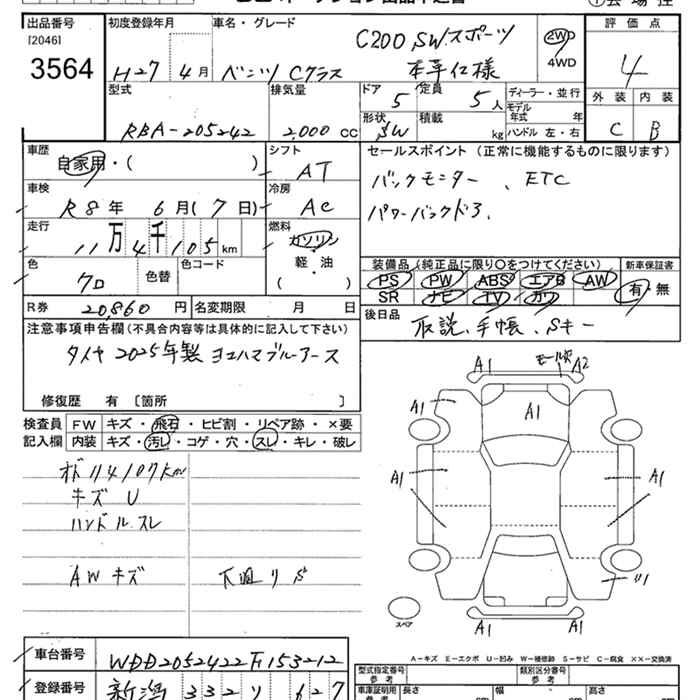 出品番号
[2046]
3564
初度登録年月
H27 4月
車名・グレード
ベンツ Cクラス
C200 SW スポーツ
本革仕様
2WD
4WD
評価点
4
外装 内装
C B
型式
RBA-205242
排気量
2,000 cc
ドア
5
定員
5人
形状
SW
積載
kg
ディーラー・並行
モデル
年式 年
ハンドル 左・右
車歴
自家用・( )
シフト
AT
車検
R8年 6月(7日)
冷房
AC
走行
11万4千105km
燃料
ガソリン
軽・油
( )
色
クロ
色替
色コード
R券 20,860円
名変期限 月 日
セールスポイント(正常に機能するものに限ります)
バックモニター、ETC
パワーバックドア、
装備品(純正品に限り○をつけてください)
PS PW ABS エアB AW
SR ナビ TV カワ
新車保証書
有・無
後日品
取説、手帳、Sキー
注意事項申告欄(不具合内容等は具体的に記入して下さい)
タイヤ 2025年製 ヨコハマブルーアース
修復歴 有〔箇所 〕
検査員
記入欄
FW キズ・飛石・ヒビ割・リペア跡・×要
内装 キズ・汚レ・コゲ・穴・スレ・キレ・破レ
114107km
キズ U
ハンドルスレ
AW キズ
下廻り S
A1
モール
A2
A1
A1
A1
A1
A1
A1
スペア
A-キズ E-エクボ U-凹み W-補修跡 S-サビ C-腐食 ××-交換済
車台番号
WDD2052422F153212
登録番号
新潟 332 り 627
型式指定番号
参考
類別区分番号
参考
車庫証明用
参考
長さ
幅
高さ